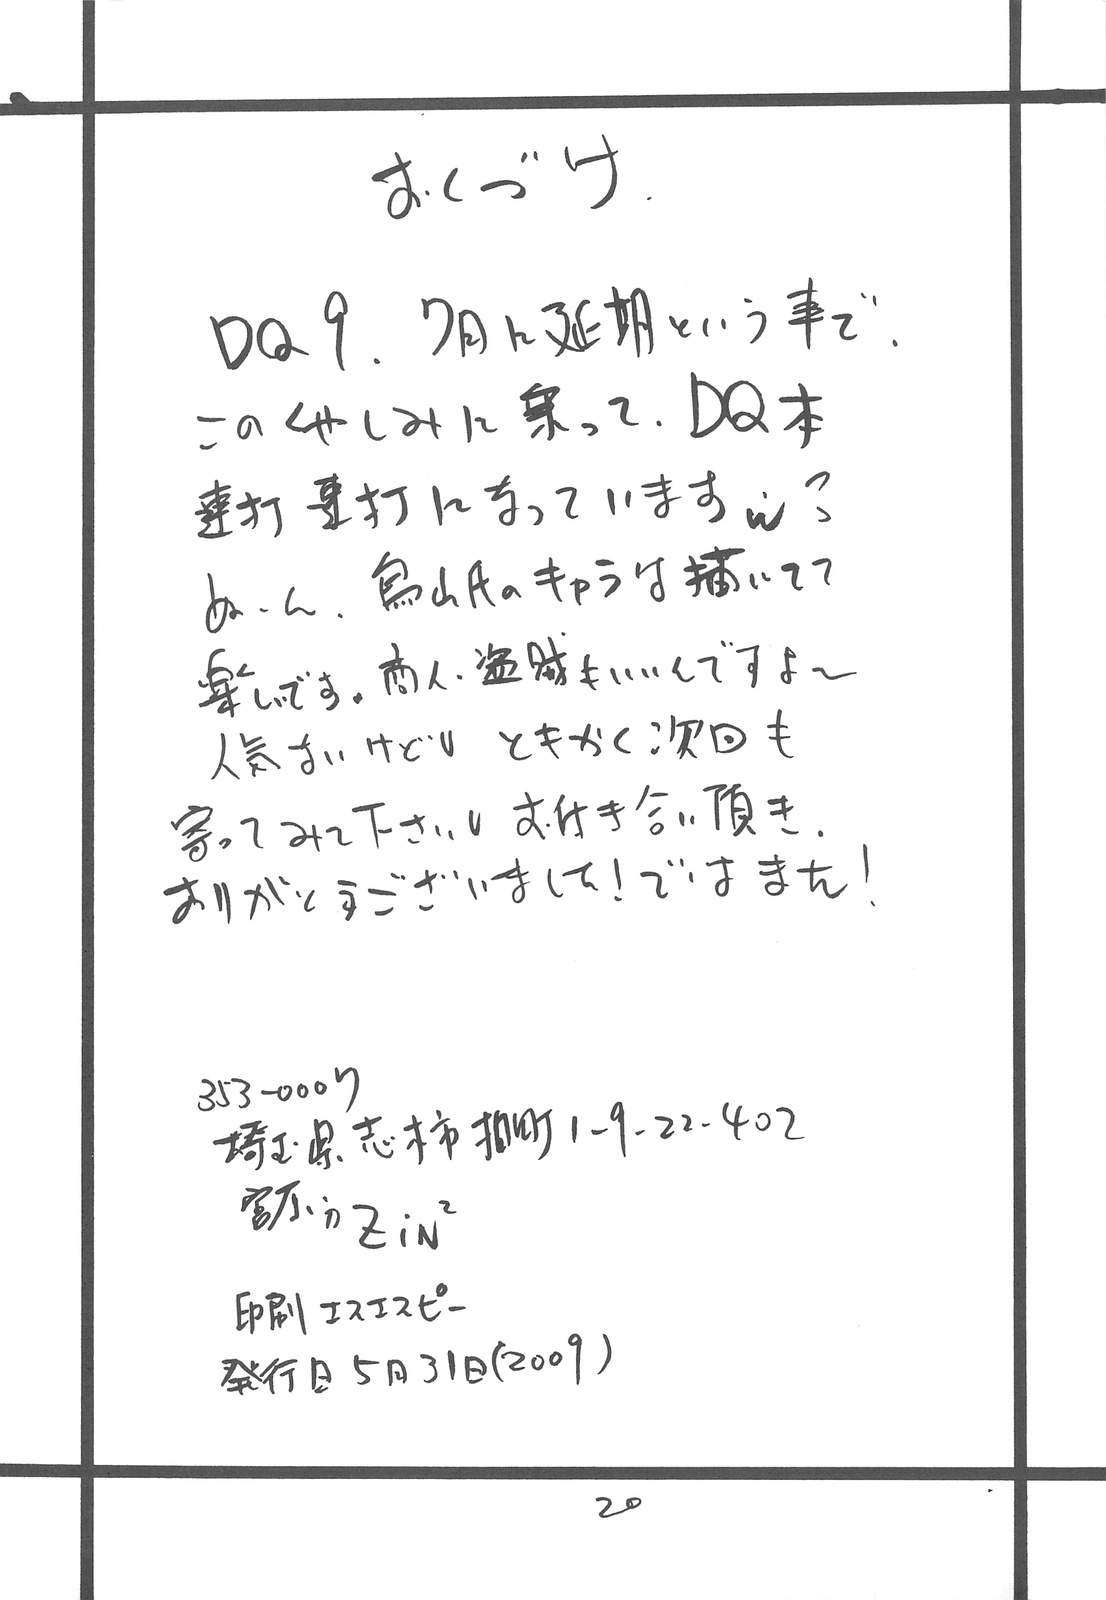 おくづけ.
DQ9. 7月に延期という事で.
このくやしみに乗って. DQ本
連打連打になっています
ぬーん. 鳥山氏のキャラは描いてて
楽しいです。商人・盗賊もいいんですよ〜
人気ないけどし ともかく次回も
寄ってみて下さいし お付き合い頂き.
ありがとうございました!ではまた!
353-0007
埼玉県志木市柏町1-9-22-402
ZiN²
印刷 エスエスピー
発行日 5月31日(2009)
20